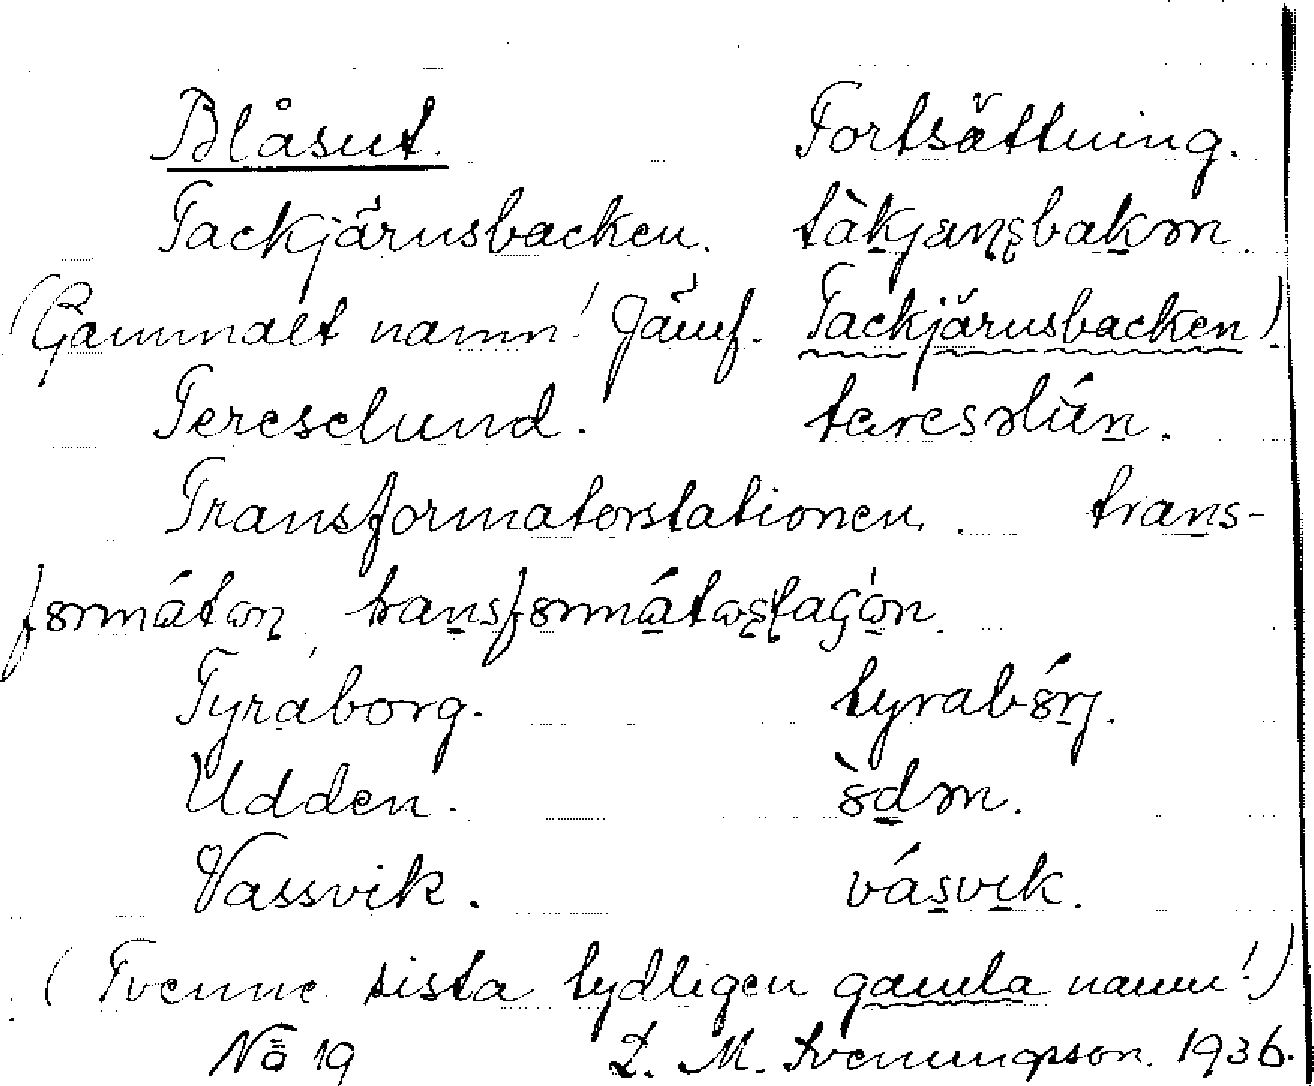 Blåsut. Fortsättning.
Tackjärnsbacken. tàkjæɳʂbakən.
(Gammalt namn! Jämf. Tackjärnsbacken)
Tereselund. teresəlún.
Transformatorstationen. trans-
formátorn transformátorstaʃón.
Tyraborg. tyrabórj.
Udden. òdən.
Vassvik. vásvik.
(Tvenne sista tydligen gamla namn!)
No 19 D. M. Svenungsson. 1936.